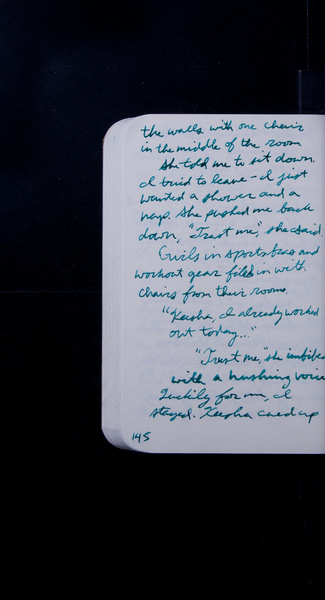 the walls with one chair
in the middle of the room
She told me to sit down.
I tried to leave - I just
wanted a shower and a
nap. She pushed me back
down, "Trust me," she said.
Girls in sports bras and
workout gear filed in with
chairs from their rooms.
"Keisha, I already worked
out today..."
"Trust me," she
with a hushing voice
Luckily for me, I
stayed. Keisha cued up
145